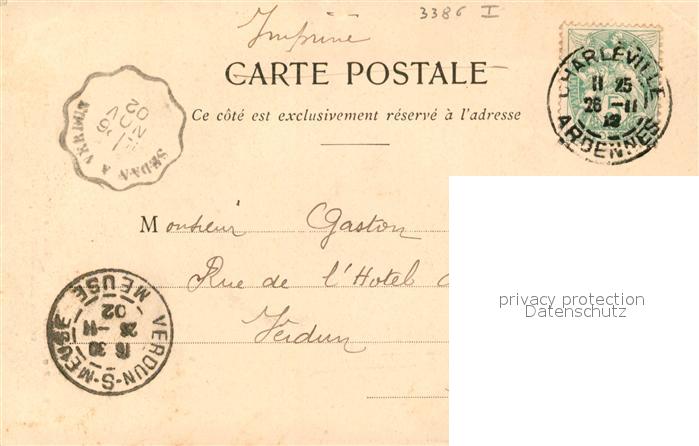 3386 I
Imprimé
CARTE POSTALE
Ce côté est exclusivement réservé à l'adresse
CHARLEVILLE
11 25
26 -11
02
ARDENNES
5
SEDAN A VERDUN
26
NOV
02
Monsieur Gaston
Rue de l'Hotel
Verdun
VERDUN-S-MEUSE
16 30
26 -11
02
MEUSE
privacy protection
Datenschutz